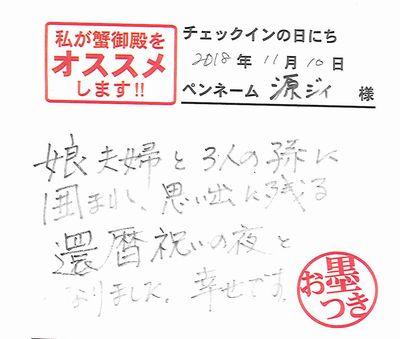 私が蟹御殿を
オススメ
します!!
チェックインの日にち
2018年11月10日
ペンネーム 源ジィ 様
娘夫婦と3人の孫に
囲まれ、思い出に残る
還暦祝いの夜と
なりました。幸せです。
お墨つき